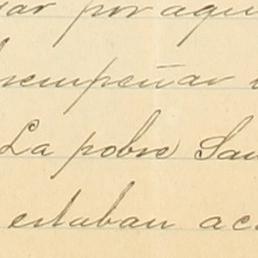 por aqu
empeñar
La pobre San
estaban ac